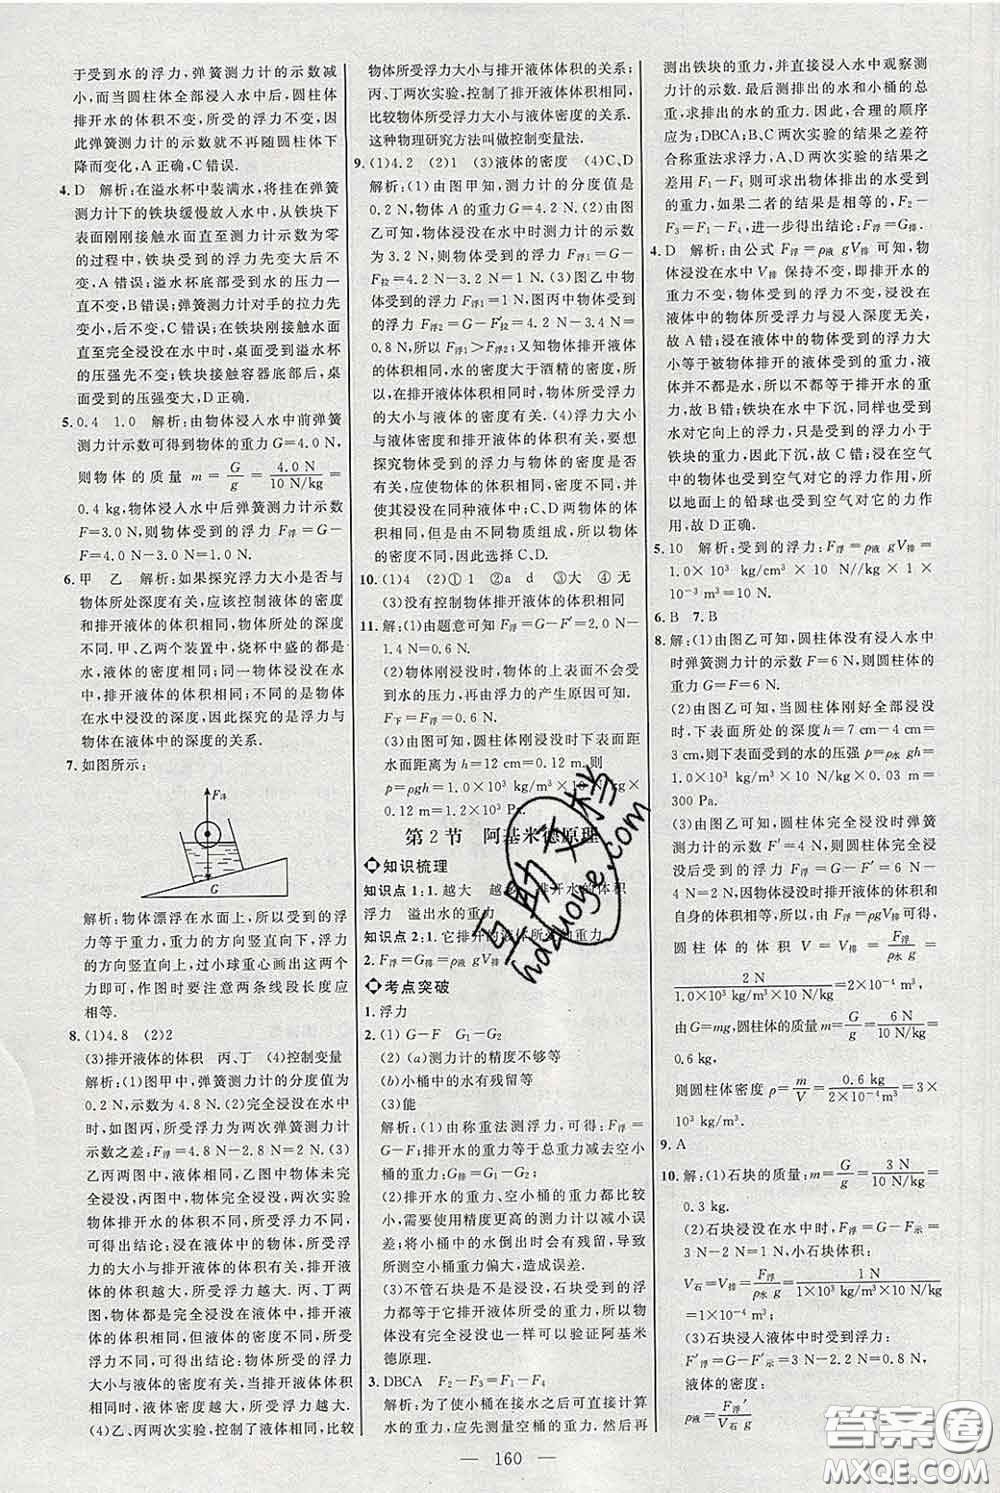 于受到水的浮力,弹簧测力计的示数减
小,而当圆柱体全部浸入水中后,圆柱体
排开水的体积不变,所受的浮力不变,因
此弹簧测力计的示数就不再随圆柱体下
降而变化,A正确,C错误.
4. D 解析:在溢水杯中装满水,将挂在弹簧
测力计下的铁块缓慢放入水中,从铁块下
表面刚刚接触水面直至测力计示数为零
的过程中,铁块受到的浮力先变大后不
变,A错误;溢水杯底部受到水的压力一
直不变,B错误;弹簧测力计对手的拉力先
变小,后不变,C错误;在铁块刚接触水面
直至完全浸没在水中时,桌面受到溢水杯
的压强先不变;铁块接触容器底部后,桌
面受到的压强变大,D正确.
5. 0.4 1.0 解析:由物体浸入水中前弹簧
测力计示数可得到物体的重力G=4.0 N,
则物体的质量 m=G/g=4.0 N/10 N/kg=
0.4 kg,物体浸入水中后弹簧测力计示数
F=3.0 N,则物体受到的浮力 F浮=G-
F=4.0 N-3.0 N=1.0 N.
6. 甲 乙 解析:如果探究浮力大小是否与
物体所处深度有关,应该控制液体的密度
和排开液体的体积相同,物体所处的深度
不同.甲、乙两个装置中,烧杯中盛的都是
水,液体的密度相同;同一物体浸没在水
中,排开液体的体积相同;不同的是物体
在水中浸没的深度,因此探究的是浮力与
物体在液体中的深度的关系.
7. 如图所示:
F A
G
解析:物体漂浮在水面上,所以受到的浮
力等于重力,重力的方向竖直向下,浮力
的方向竖直向上,过小球重心画出这两个
力即可,作图时要注意两条线段长度应相
等.
8. (1)4.8 (2)2
(3)排开液体的体积 丙、丁 (4)控制变量
解析:(1)图甲中,弹簧测力计的分度值为
0.2 N,示数为4.8 N.(2)完全浸没在水
中,如图丙,所受浮力为两次弹簧测力计
示数之差:F浮=4.8 N-2.8 N=2 N.(3)
乙丙两图,液体密度相同,乙图中物体未完
全浸没,丙图中,物体完全浸没,两次实验
物体排开水的体积不同,所受浮力不同,
可得出结论:浸在液体中的物体,所受浮
力大小与排开液体的体积有关,排开液
体的体积越大,所受浮力越大.丙、丁两
图,物体都是完全浸没在液体中,排开液
体的体积相同,但液体的密度不同,所受浮
力不同,可得出结论:物体所受的浮力
大小与液体密度有关,当排开液体体积
相同时,液体密度越大,所受浮力越大.
(4)乙、丙两次实验,控制了液体密度,比较
物体所受浮力大小与排开液体体积的关系;
丙、丁两次实验,控制了排开液体体积相同,
比较物体所受浮力大小与液体密度的关系.
这种物理研究方法叫做控制变量法.
9. (1)4.2 (2)1 (3)液体的密度 (4)C、D
解析:(1)由图甲知,测力计的分度值是
0.2 N,物体A的重力G=4.2 N.(2)由图
乙可知,物体在水中时测力计的示数为
3.2 N,则物体受到水的浮力:F浮1=G-
F拉=4.2 N-3.2 N=1 N.(3)图乙中物体
受到的浮力 F浮1=1 N,图丙中物体受到
的浮力 F浮2=G-F′拉=4.2 N-3.4 N=
0.8 N,所以 F浮1>F浮2,又知物体排开液
体的体积相同,水的密度大于酒精的密度,
所以,在排开液体体积相同时,物体所受浮力
的大小与液体的密度有关.(4)浮力大小
与液体密度和排开液体体积有关,要想
探究物体受到的浮力与物体密度是否有关,
应使物体的体积相同、物体的密度不同,并
使其浸没在同种液体中;C、D两物体的体
积相同,但是由不同物质组成,所以物体
的密度不同,因此选择C、D.
10. (1)4 (2)①1 ②a d ③大 ④无
(3)没有控制物体排开液体的体积相同
11. 解:(1)由题意可知F浮=G-F′=2.0 N-
1.4 N=0.6 N.
(2)物体刚浸没时,物体的上表面不会受
到水的压力,再由浮力的产生原因可知.
F下=F浮=0.6 N.
(3)由图可知,圆柱体刚浸没时下表面距
水面距离为h=12 cm=0.12 m.则
p=ρgh=1.0×10³ kg/m³×10 N/kg×
0.12 m=1.2×10³ Pa.
第2节 阿基米德原理
知识梳理
知识点1:1. 越大 越 排开水的体积
浮力 溢出水的重力
知识点2:1. 它排开的液体所受的重力
2. F浮=G排=ρ液 gV排
考点突破
1. 浮力
2. (1) G-F G₁-G₂
(2) (a)测力计的精度不够等
(b)小桶中的水有残留等
(3)能
解析:(1)由称重法测浮力:F浮=G-
F;排开水的重力等于总重力减去空小
桶的重力:G排=G₁-G₂.
(2)排开水的重力、空小桶的重力都比较
小,需要使用精度更高的测力计以减小误
差;将小桶中的水倒出时有残留,会导致
所测空小桶重力偏大,造成误差.
(3)不管石块是不是浸没,石块受到的浮
力都等于它排开液体所受的重力,所以物
体没有完全浸没也一样可以验证阿基米
德原理.
3. DBCA F₂-F₃=F₁-F₄
解析:为了使小桶在接水之后可直接计算水
的重力,应先测量空桶的重力.然后再
测出铁块的重力,并直接浸入水中观察测
力计的示数.最后测排出的水和小桶的总
重,求排出的水的重力.因此,合理的顺序
应为:DBCA;B、C两次实验的结果之差符
合称重法求浮力,A、D两次实验的结果之
差用 F₁-F₄ 则可求出物体排出的水受到
的重力,如果二者的结果是相等的,F₂-
F₃=F₁-F₄,进一步得出结论:F浮=G排.
4. D 解析:由公式 F浮=ρ液 gV排 可知,物
体浸没在水中 V排 保持不变,即排开水的
体积不变,所以受到的浮力不变,浸没在
液体中的物体所受浮力与浸入深度无关,
故A错;浸没在液体中的物体受到的浮力大
小等于被物体排开的液体受到的重力,液
体流动性差,所以并不能不考虑排开液体的重力,
故B错;铁块在水中下沉,同样也受到浸
水对它向上的浮力,只是受到的浮力小于
铁块的重力,因此下沉,故C错;浸在空气
中的物体也受到空气的浮力作用,所
以地面上的铅球也受到空气对它的力的作
用,故D正确.
5. 10 解析:受到的浮力:F浮=ρ液 gV排=
1.0×10³ kg/m³×10 N/kg×1×
10⁻³ m³=10 N.
6. B 7. B
8. 解:(1)由图乙可知,圆柱体没有浸入水中
时弹簧测力计的示数F=6 N,则圆柱体的
重力G=F=6 N.
(2)由图乙可知,当圆柱体刚好全部浸没
时,下表面所处的深度h=7 cm-4 cm=
3 cm,下表面受到的水的压强 p=ρ水 gh=
1.0×10³ kg/m³×10 N/kg×0.03 m=
300 Pa.
(3)由图乙可知,圆柱体完全浸没后弹簧
测力计的示数F′=4 N,则圆柱体完全
浸没后受到的浮力F浮=G-F′=6 N-4 N=
2 N.因物体浸没时排开液体的体积和
自身的体积相等,F浮=ρgV排可知,
圆柱体的体积 V=V排=F浮/ρ水 g=
2 N/1.0×10³ kg/m³×10 N/kg=2×10⁻⁴ m³
由G=mg,圆柱体的质量 m=G/g=6 N/10 N/kg=
0.6 kg,
则圆柱体密度 ρ=m/V=0.6 kg/2×10⁻⁴ m³=3×
10³ kg/m³.
9. A
10. 解:(1)石块的质量:m=G/g=3 N/10 N/kg=
0.3 kg.
(2)石块浸没在水中时,F浮=G-F示=
3 N-2 N=1 N,石块体积:
V石=V排=F浮/ρ水 g=1 N/1×10³ kg/m³×10 N/kg
=1×10⁻⁴ m³;
(3)石块浸入液体中时受到浮力:
F′浮=G-F′示=3 N-2.2 N=0.8 N,
液体的密度:
ρ液=F浮′/V石 g=
— 160 —
互助文档
hdzuoye.com
答案圈
MXQE.COM